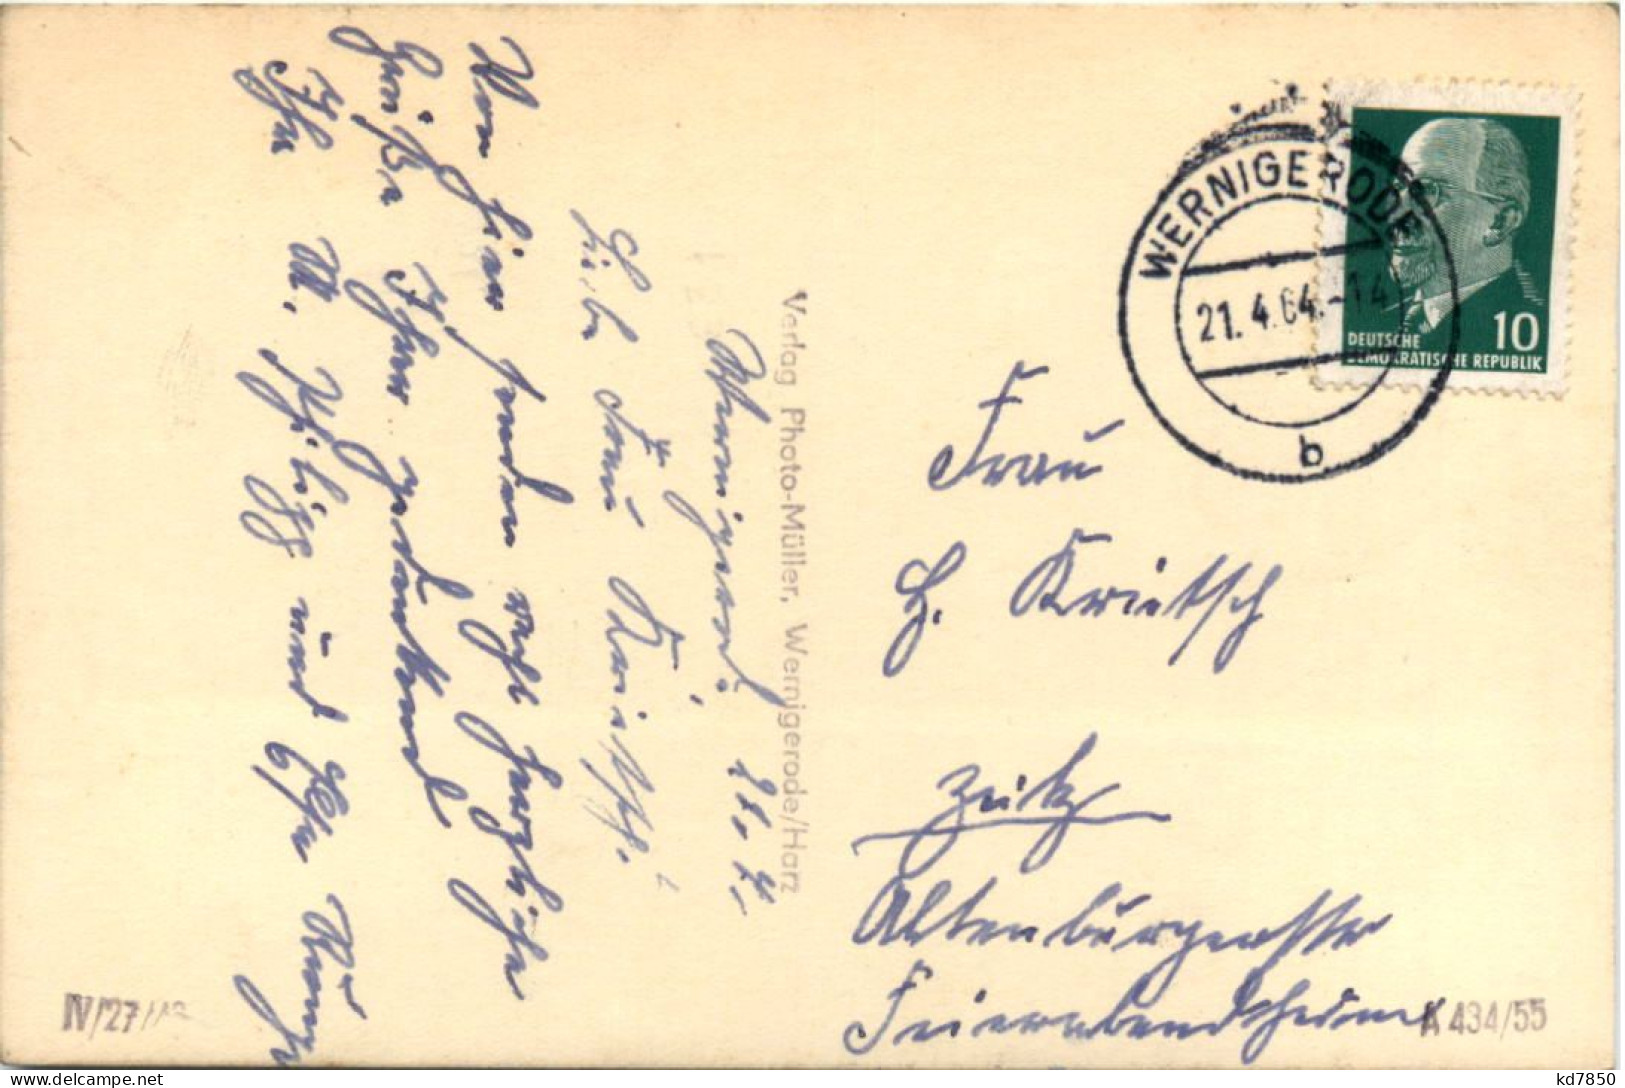 Wernigerode 21. 4.
Liebe Frau Krietsch.
Von hier senden recht herzliche
Grüße Ihrer gedenkend
Ihr W. und
Verlag Photo-Müller, Wernigerode/Harz
WERNIGERODE
21. 4. 64.-14
b
10
DEUTSCHE
DEMOKRATISCHE REPUBLIK
Frau
H. Krietsch
Zeitz
Altenburgerstr
Feierabendheim
IV/27/
A 434/55
kd7850